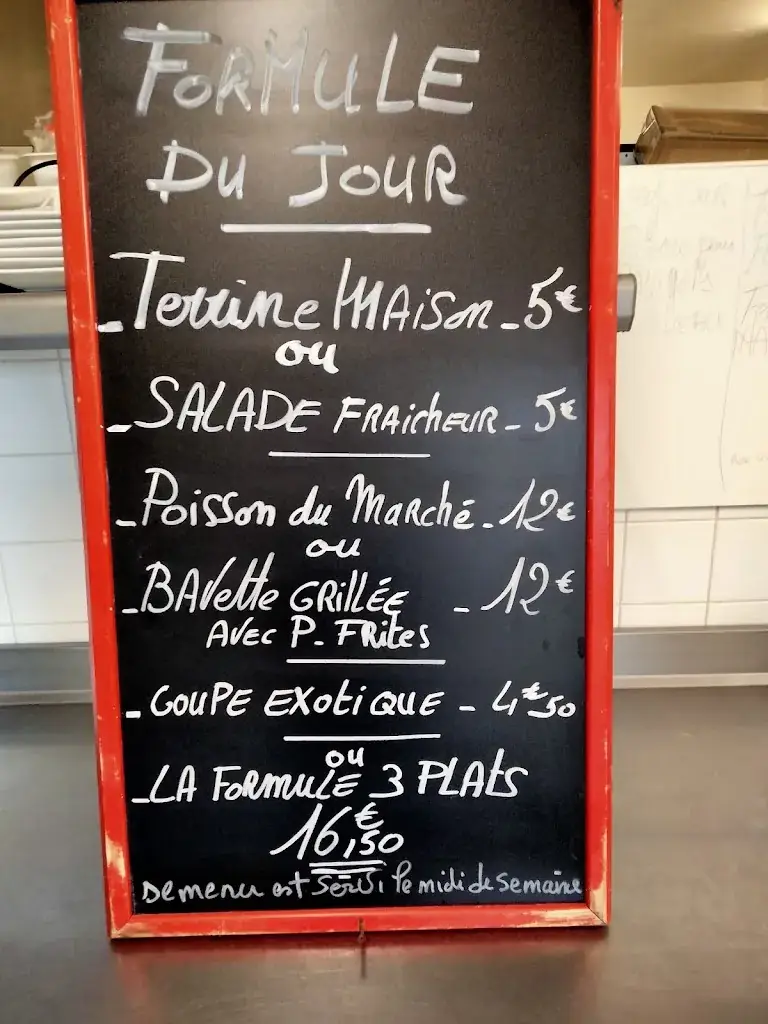 FORMULE
DU JOUR
- Terrine MAison - 5€
ou
- SALADE FRAicHEUR - 5€
- Poisson du MaRché - 12€
ou
- BAVette GRILLÉE - 12€
AVEC P. FRites
- COUPE EXOtiQUE - 4€50
ou
- LA FoRMULE 3 PLAts
16€,50
menu est servi le midi de semaine